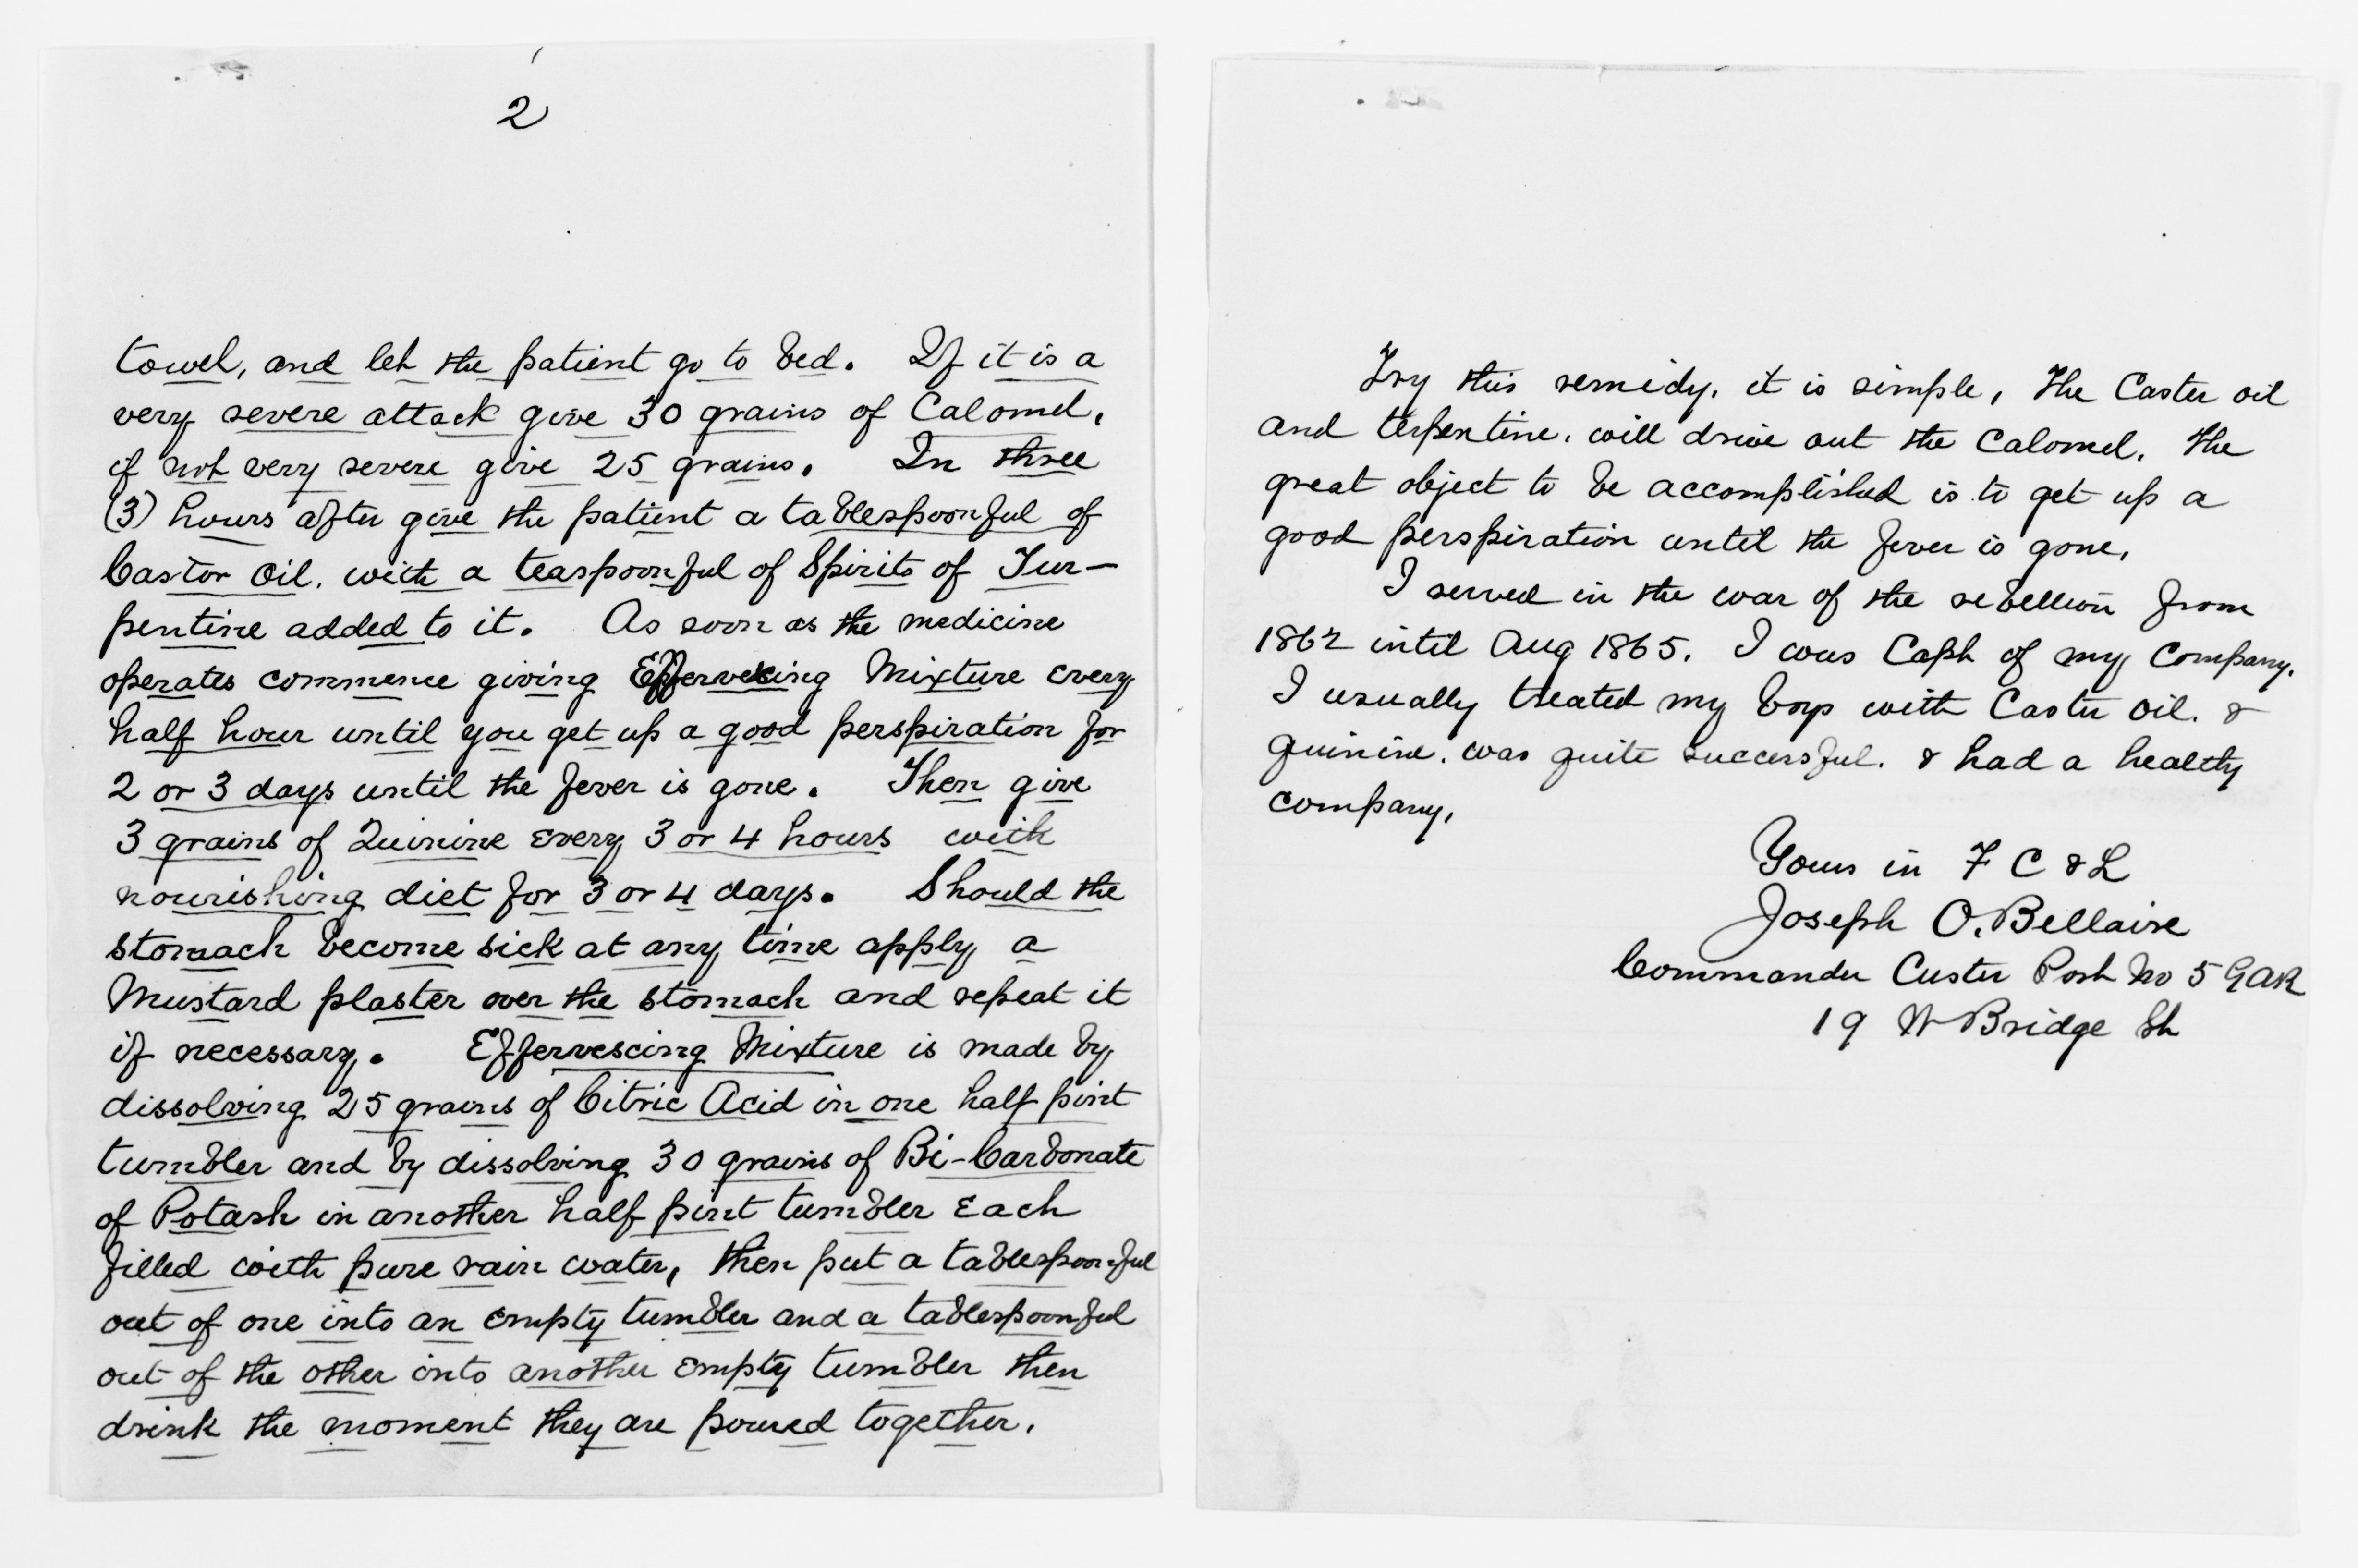 2
towel, and let the patient go to bed. If it is a
very severe attack give 30 grains of Calomel,
if not very severe give 25 grains. In three
(3) hours after give the patient a tablespoonful of
Castor Oil. with a teaspoonful of Spirits of Tur-
pentine added to it. As soon as the medicine
operates commence giving Effervescing Mixture every
half hour until you get up a good perspiration for
2 or 3 days until the fever is gone. Then give
3 grains of Quinine every 3 or 4 hours with
nourishing diet for 3 or 4 days. Should the
stomach become sick at any time apply a
Mustard plaster over the stomach and repeat it
if necessary. Effervescing Mixture is made by
dissolving 25 grains of Citric Acid in one half pint
tumbler and by dissolving 30 grains of Bi-Carbonate
of Potash in another half pint tumbler Each
filled with pure rain water, then put a tablespoonful
out of one into an empty tumbler and a tablespoonful
out of the other into another empty tumbler then
drink the moment they are poured together.
Try this remidy. it is simple, The Caster oil
and terpentine. will drive out the Calomel. the
great object to be accomplished is to get up a
good perspiration until the fever is gone.
I served in the war of the rebellion from
1862 intil Aug 1865. I was Capt of my Company.
I usually treated my boys with Caster oil. &
quinine. was quite successful. & had a healthy
company.
Yours in F C & L
Joseph O. Bellaire
Commander Custer Post No 5 GAR
19 W Bridge St